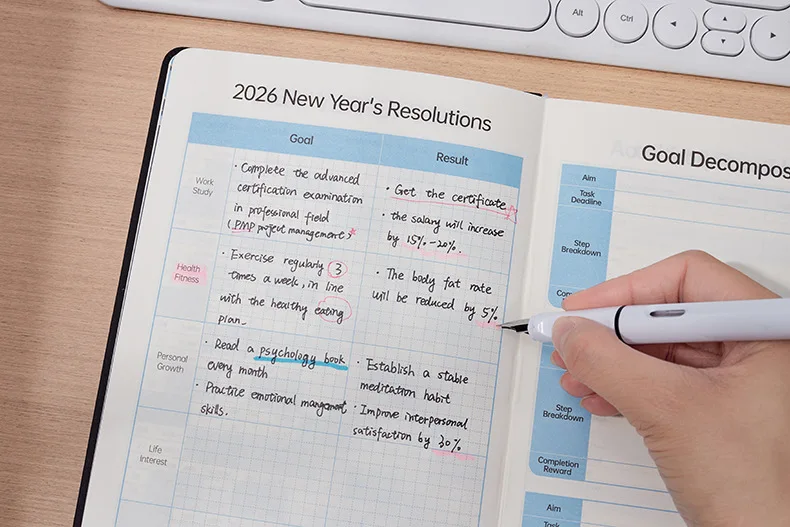 Alt
Ctrl
2026 New Year's Resolutions
Goal
Result
Work
Study
· Complete the advanced
certification examination
in professional field
(PMP project management)*
· Get the certificate
· the salary will increase
by 15%-20%.
Health
Fitness
· Exercise regularly 3
times a week, in line
with the healthy eating
plan.
· The body fat rate
will be reduced by 5%
Personal
Growth
· Read a psychology book
every month
· Practice emotional mangement
skills.
· Establish a stable
meditation habit
· Improve interpersonal
satisfaction by 30%
Life
Interest
Goal Decompos
Aim
Task
Deadline
Step
Breakdown
Step
Breakdown
Completion
Reward
Aim
Task